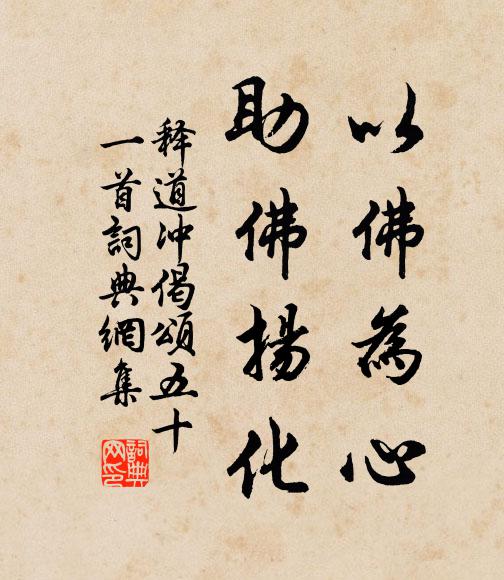 以佛為心
助佛揚化
释道冲偈頌五十
一首詞典網集
詞典
网印